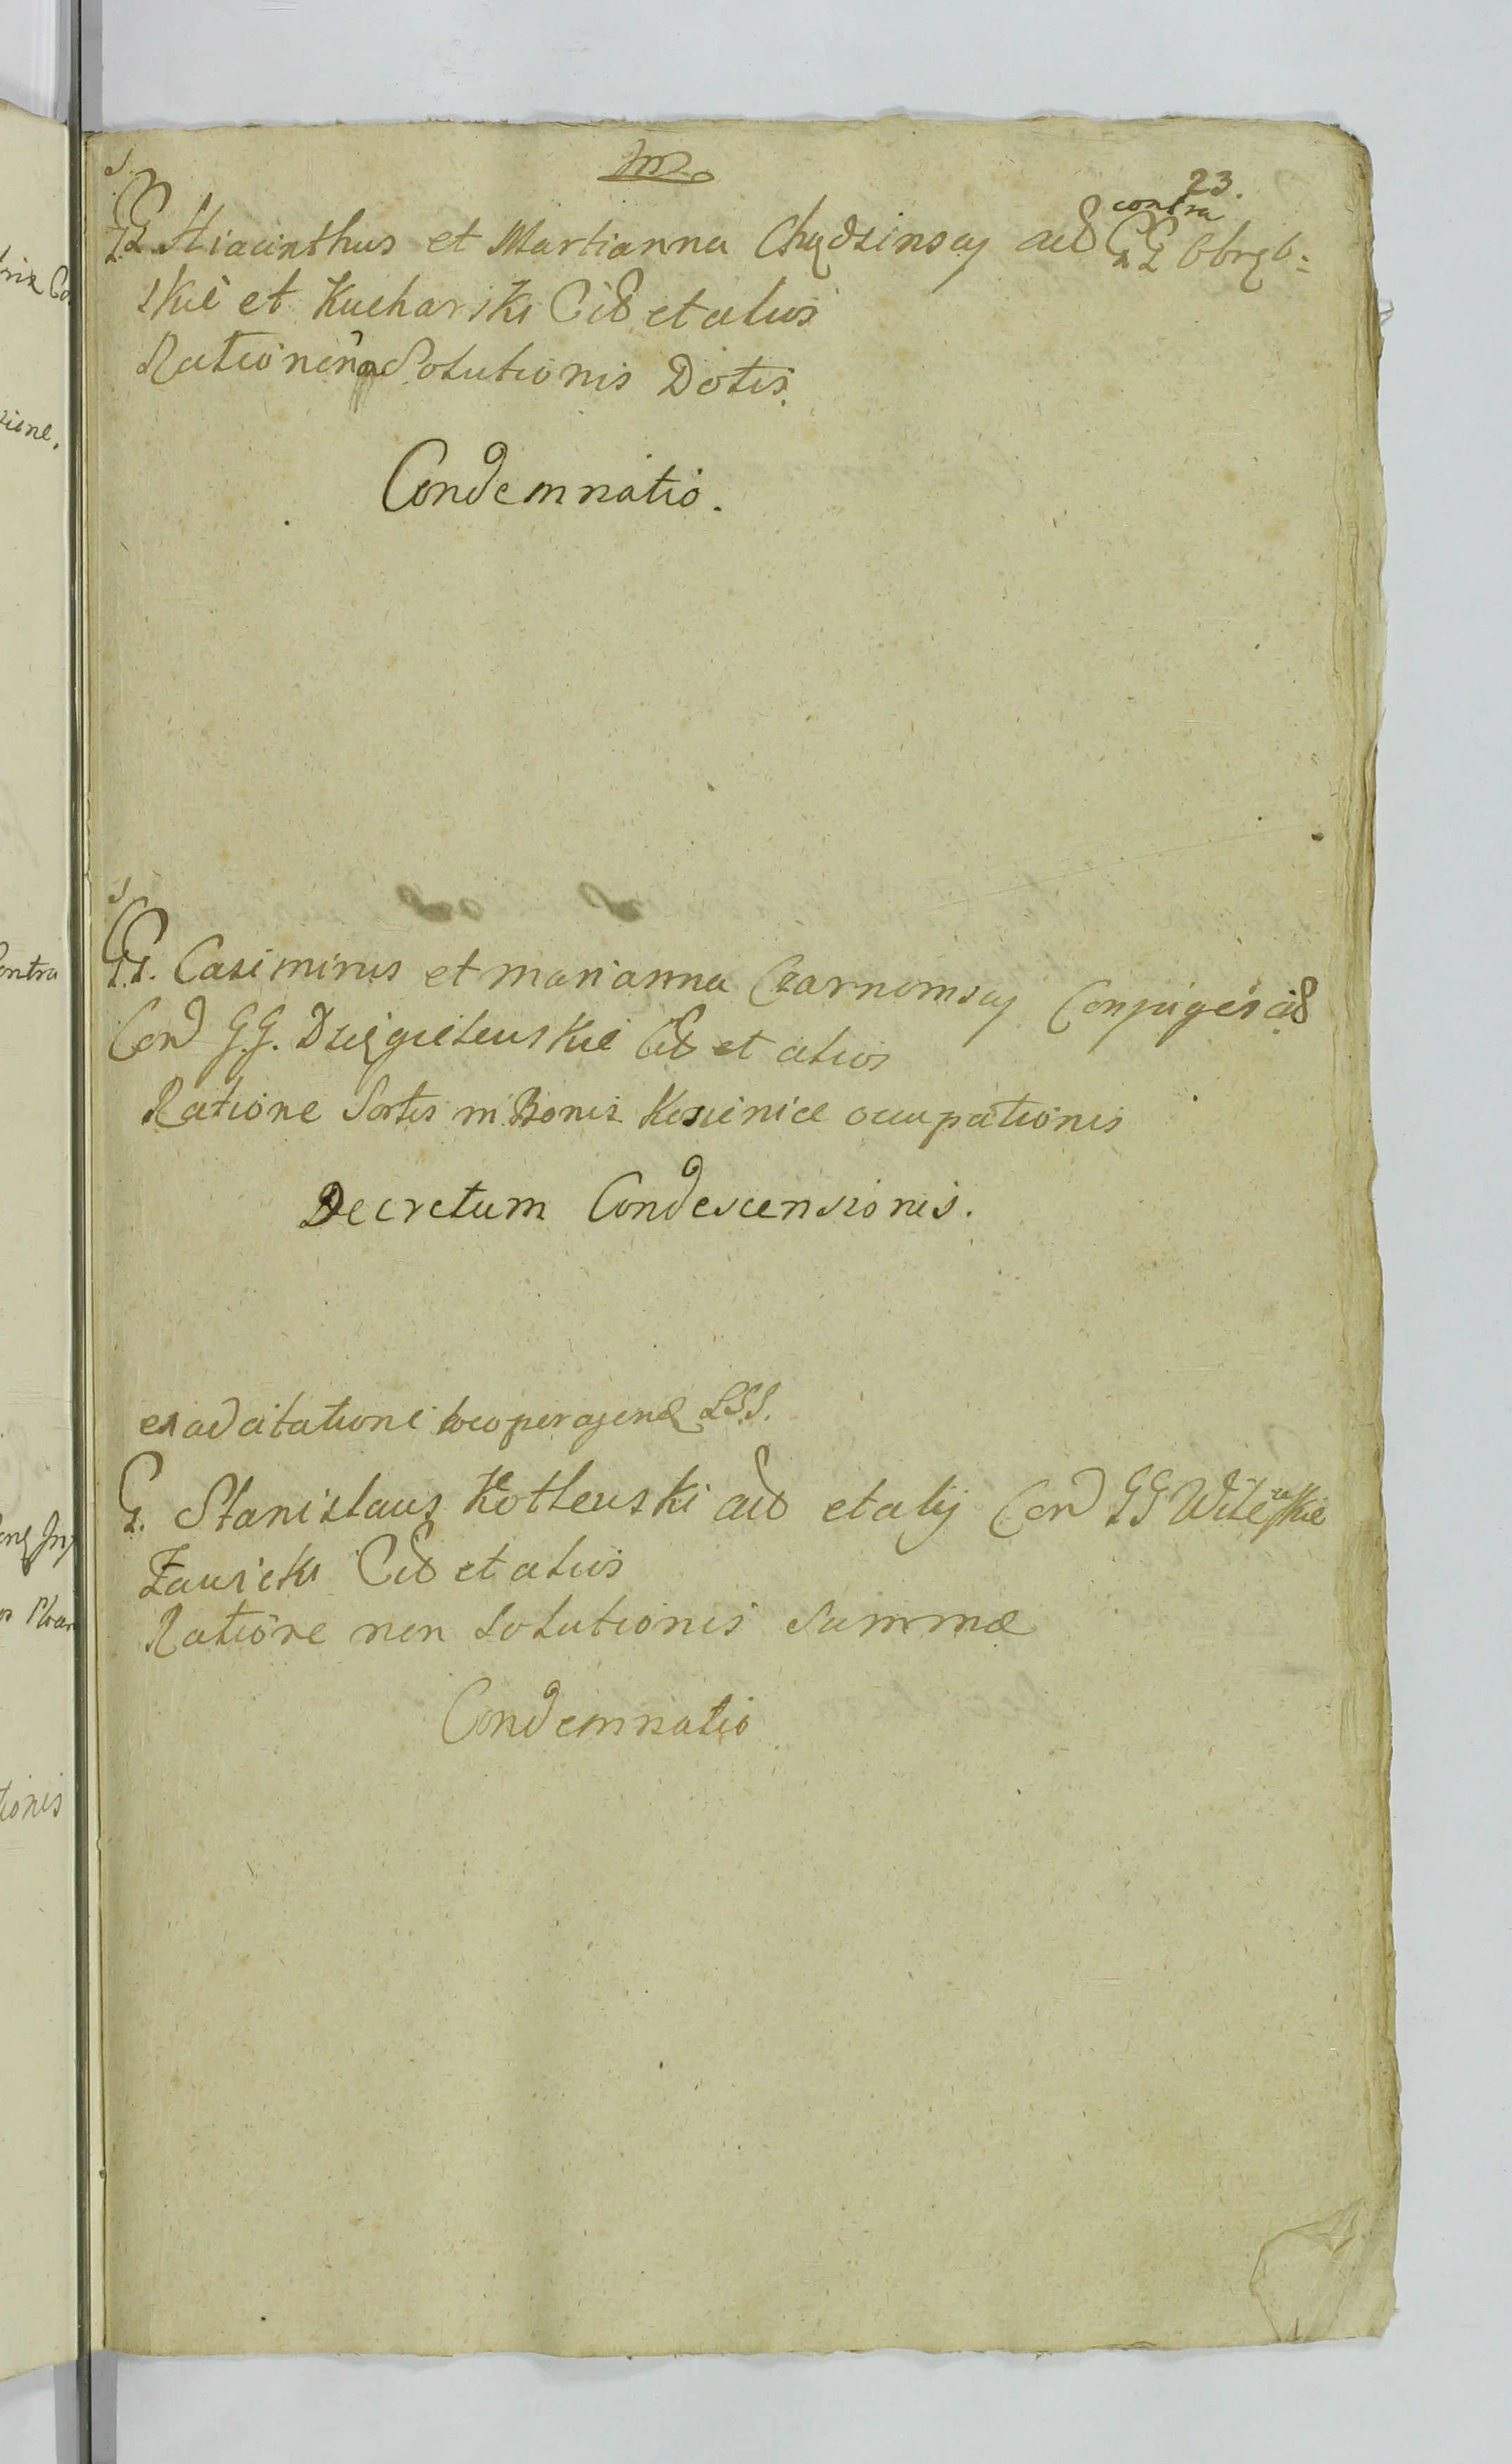 23.
GG Hiacinthus et Martianna Chądzinscy ad contra GG Obręb:
skie et Kucharski Cit et alios
Ratione Solutionis Dotis.
Condemnatio.
GG. Casimirus et marianna Czarnomscy Conjuges
Con GG. Dzięgielewskie et alios
Ratione Sortis in Bonis Kosienice occupationis
Decretum Condescensionis.
ex adcitatione loco peragend LSS.
G. Stanislaus Kotlewski et alij Con GG
Zawicki et alios
Ratione non Solutionis Summæ
Condemnatio